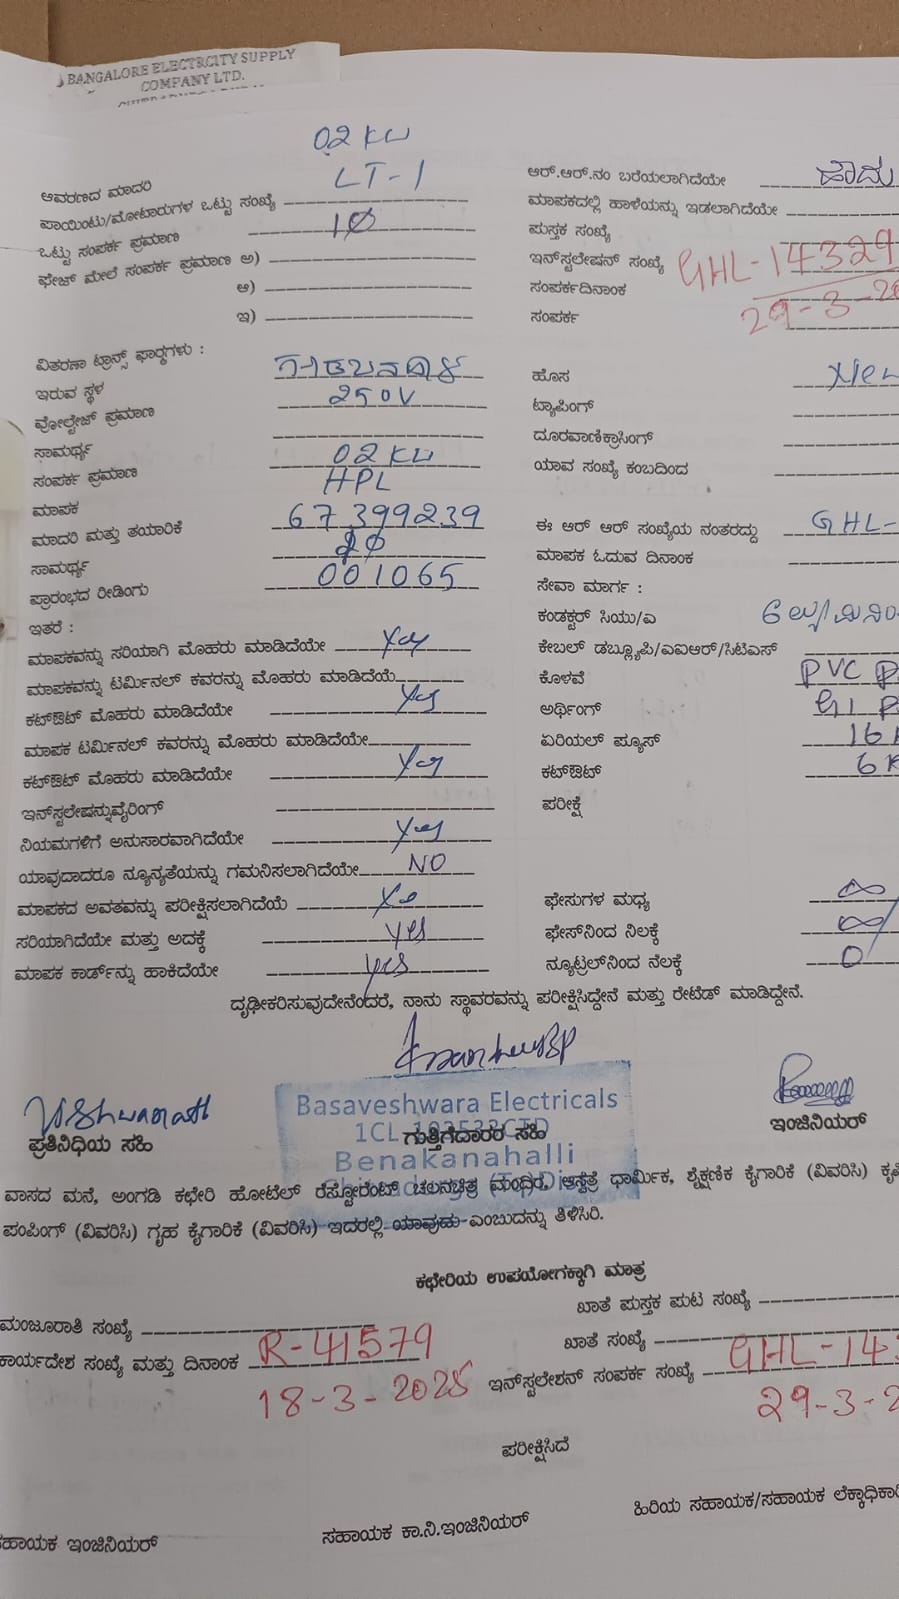 BANGALORE ELECTRCITY SUPPLY
COMPANY LTD.
02 KW
ಆವರಣದ ಮಾದರಿ LT-1
ಪಾಯಿಂಟು/ಮೋಟಾರುಗಳ ಒಟ್ಟು ಸಂಖ್ಯೆ
ಒಟ್ಟು ಸಂಪರ್ಕ ಪ್ರಮಾಣ 1Ø
ಫೇಜ್ ಮೇಲೆ ಸಂಪರ್ಕ ಪ್ರಮಾಣ ಅ)
ಆ)
ಇ)
ವಿತರಣಾ ಟ್ರಾನ್ಸ್ ಫಾರ್‍ಮಗಳು :
ಇರುವ ಸ್ಥಳ
ವೋಲ್ಟೇಜ್ ಪ್ರಮಾಣ 250V
ಸಾಮರ್ಥ್ಯ
ಸಂಪರ್ಕ ಪ್ರಮಾಣ 02 KW
ಮಾಪಕ HPL
ಮಾದರಿ ಮತ್ತು ತಯಾರಿಕೆ 67399239
ಸಾಮರ್ಥ್ಯ
ಪ್ರಾರಂಭದ ರೀಡಿಂಗು 001065
ಇತರೆ :
ಮಾಪಕವನ್ನು ಸರಿಯಾಗಿ ಮೊಹರು ಮಾಡಿದೆಯೇ Yes
ಮಾಪಕವನ್ನು ಟರ್ಮಿನಲ್ ಕವರನ್ನು ಮೊಹರು ಮಾಡಿದೆಯೆ
ಕಟ್‌ಔಟ್ ಮೊಹರು ಮಾಡಿದೆಯೇ Yes
ಮಾಪಕ ಟರ್ಮಿನಲ್ ಕವರನ್ನು ಮೊಹರು ಮಾಡಿದೆಯೇ
ಕಟ್‌ಔಟ್ ಮೊಹರು ಮಾಡಿದೆಯೇ Yes
ಇನ್‌ಸ್ಟಲೇಷನ್ನುವೈರಿಂಗ್
ನಿಯಮಗಳಿಗೆ ಅನುಸಾರವಾಗಿದೆಯೇ Yes
ಯಾವುದಾದರೂ ನ್ಯೂನ್ಯತೆಯನ್ನು ಗಮನಿಸಲಾಗಿದೆಯೇ NO
ಮಾಪಕದ ಅವತವನ್ನು ಪರೀಕ್ಷಿಸಲಾಗಿದೆಯೆ Yes
ಸರಿಯಾಗಿದೆಯೇ ಮತ್ತು ಅದಕ್ಕೆ yes
ಮಾಪಕ ಕಾರ್ಡ್‌ನ್ನು ಹಾಕಿದೆಯೇ yes
ಆರ್.ಆರ್.ನಂ ಬರೆಯಲಾಗಿದೆಯೇ ಹೌದು
ಮಾಪಕದಲ್ಲಿ ಹಾಳೆಯನ್ನು ಇಡಲಾಗಿದೆಯೇ
ಪುಸ್ತಕ ಸಂಖ್ಯೆ
ಇನ್‌ಸ್ಟಲೇಷನ್ ಸಂಖ್ಯೆ GHL-14329
ಸಂಪರ್ಕದಿನಾಂಕ 29-3-20
ಸಂಪರ್ಕ
ಹೊಸ New
ಟ್ಯಾಪಿಂಗ್
ದೂರವಾಣಿಕ್ರಾಸಿಂಗ್
ಯಾವ ಸಂಖ್ಯೆ ಕಂಬದಿಂದ
ಈ ಆರ್ ಆರ್ ಸಂಖ್ಯೆಯ ನಂತರದ್ದು GHL-
ಮಾಪಕ ಓದುವ ದಿನಾಂಕ
ಸೇವಾ ಮಾರ್ಗ :
ಕಂಡಕ್ಟರ್ ಸಿಯು/ಎ
ಕೇಬಲ್ ಡಬ್ಲ್ಯೂಪಿ/ಎಐಆರ್/ಸಿಟಿಎಸ್
ಕೊಳವೆ PVC P
ಅರ್ಥಿಂಗ್ GI P
ಏರಿಯಲ್ ಪ್ಯೂಸ್ 16
ಕಟ್‌ಔಟ್ 6K
ಪರೀಕ್ಷೆ
ಫೇಸುಗಳ ಮಧ್ಯ ∞
ಫೇಸ್‌ನಿಂದ ನಿಲಕ್ಕೆ ∞
ನ್ಯೂಟ್ರಲ್‌ನಿಂದ ನೆಲಕ್ಕೆ 0
ದೃಢೀಕರಿಸುವುದೇನೆಂದರೆ, ನಾನು ಸ್ಥಾವರವನ್ನು ಪರೀಕ್ಷಿಸಿದ್ದೇನೆ ಮತ್ತು ರೇಟೆಡ್ ಮಾಡಿದ್ದೇನೆ.
Vishwanath
ಪ್ರತಿನಿಧಿಯ ಸಹಿ
Basaveshwara Electricals
ಗುತ್ತಿಗೆದಾರರ ಸಹಿ
Benakanahalli
ಇಂಜಿನಿಯರ್
ವಾಸದ ಮನೆ, ಅಂಗಡಿ ಕಛೇರಿ ಹೋಟೆಲ್ ರೆಸ್ಟೋರೆಂಟ್ ಚಲನಚಿತ್ರ ಮಂದಿರ, ಆಸ್ಪತ್ರೆ ಧಾರ್ಮಿಕ, ಶೈಕ್ಷಣಿಕ ಕೈಗಾರಿಕೆ (ವಿವರಿಸಿ)
ಪಂಪಿಂಗ್ (ವಿವರಿಸಿ) ಗೃಹ ಕೈಗಾರಿಕೆ (ವಿವರಿಸಿ) ಇದರಲ್ಲಿ ಯಾವುದು ಎಂಬುದನ್ನು ತಿಳಿಸಿರಿ.
ಕಛೇರಿಯ ಉಪಯೋಗಕ್ಕಾಗಿ ಮಾತ್ರ
ಖಾತೆ ಪುಸ್ತಕ ಪುಟ ಸಂಖ್ಯೆ
ಮಂಜೂರಾತಿ ಸಂಖ್ಯೆ
ಖಾತೆ ಸಂಖ್ಯೆ
ಕಾರ್ಯದೇಶ ಸಂಖ್ಯೆ ಮತ್ತು ದಿನಾಂಕ R-41579
18-3-2025
ಇನ್‌ಸ್ಟಲೇಶನ್ ಸಂಪರ್ಕ ಸಂಖ್ಯೆ GHL-143
29-3-2
ಪರೀಕ್ಷಿಸಿದೆ
ಸಹಾಯಕ ಇಂಜಿನಿಯರ್
ಸಹಾಯಕ ಕಾ.ನಿ.ಇಂಜಿನಿಯರ್
ಹಿರಿಯ ಸಹಾಯಕ/ಸಹಾಯಕ ಲೆಕ್ಕಾಧಿಕಾರಿ